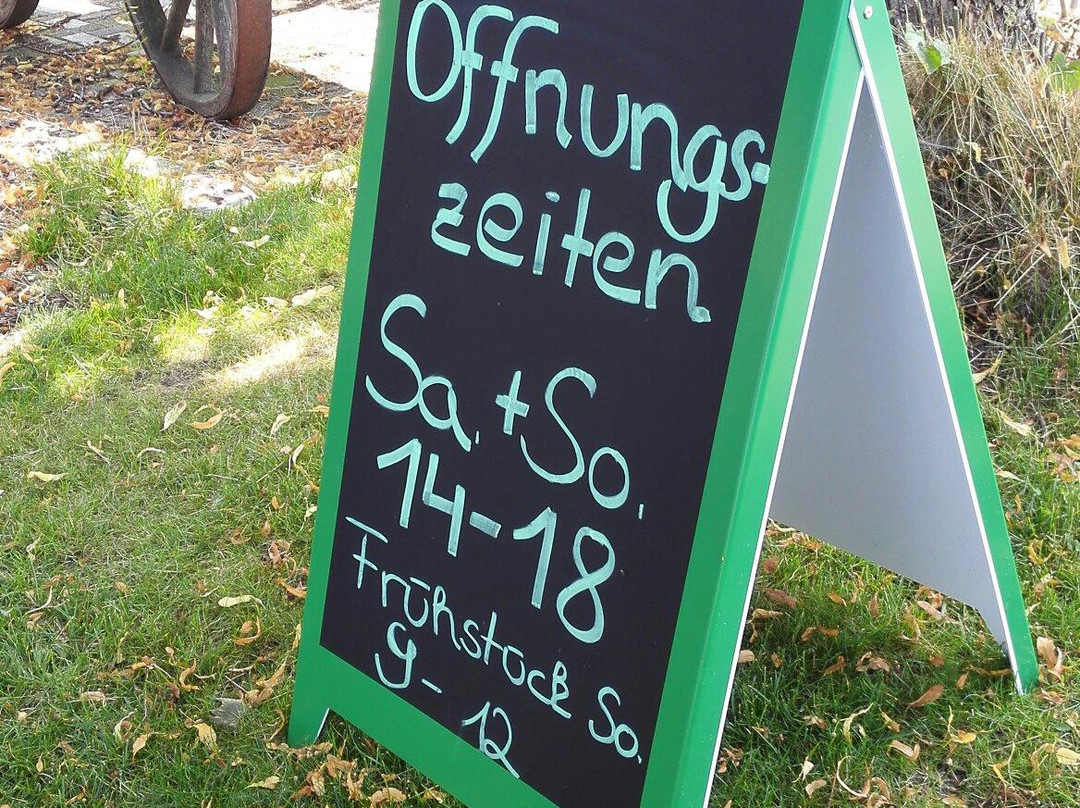 Öffnungs-
zeiten
Sa. + So.
14-18
Frühstück So.
9-12